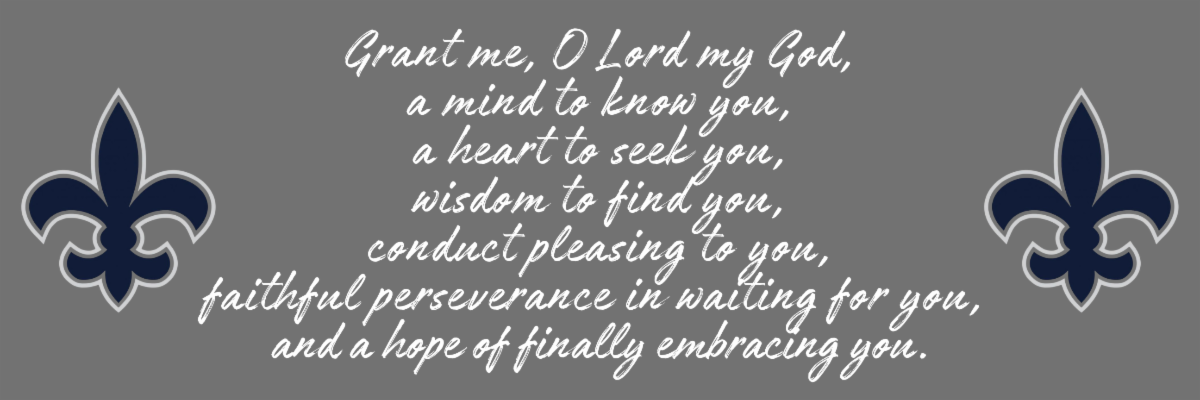 Grant me, O Lord my God,
a mind to know you,
a heart to seek you,
wisdom to find you,
conduct pleasing to you,
faithful perseverance in waiting for you,
and a hope of finally embracing you.